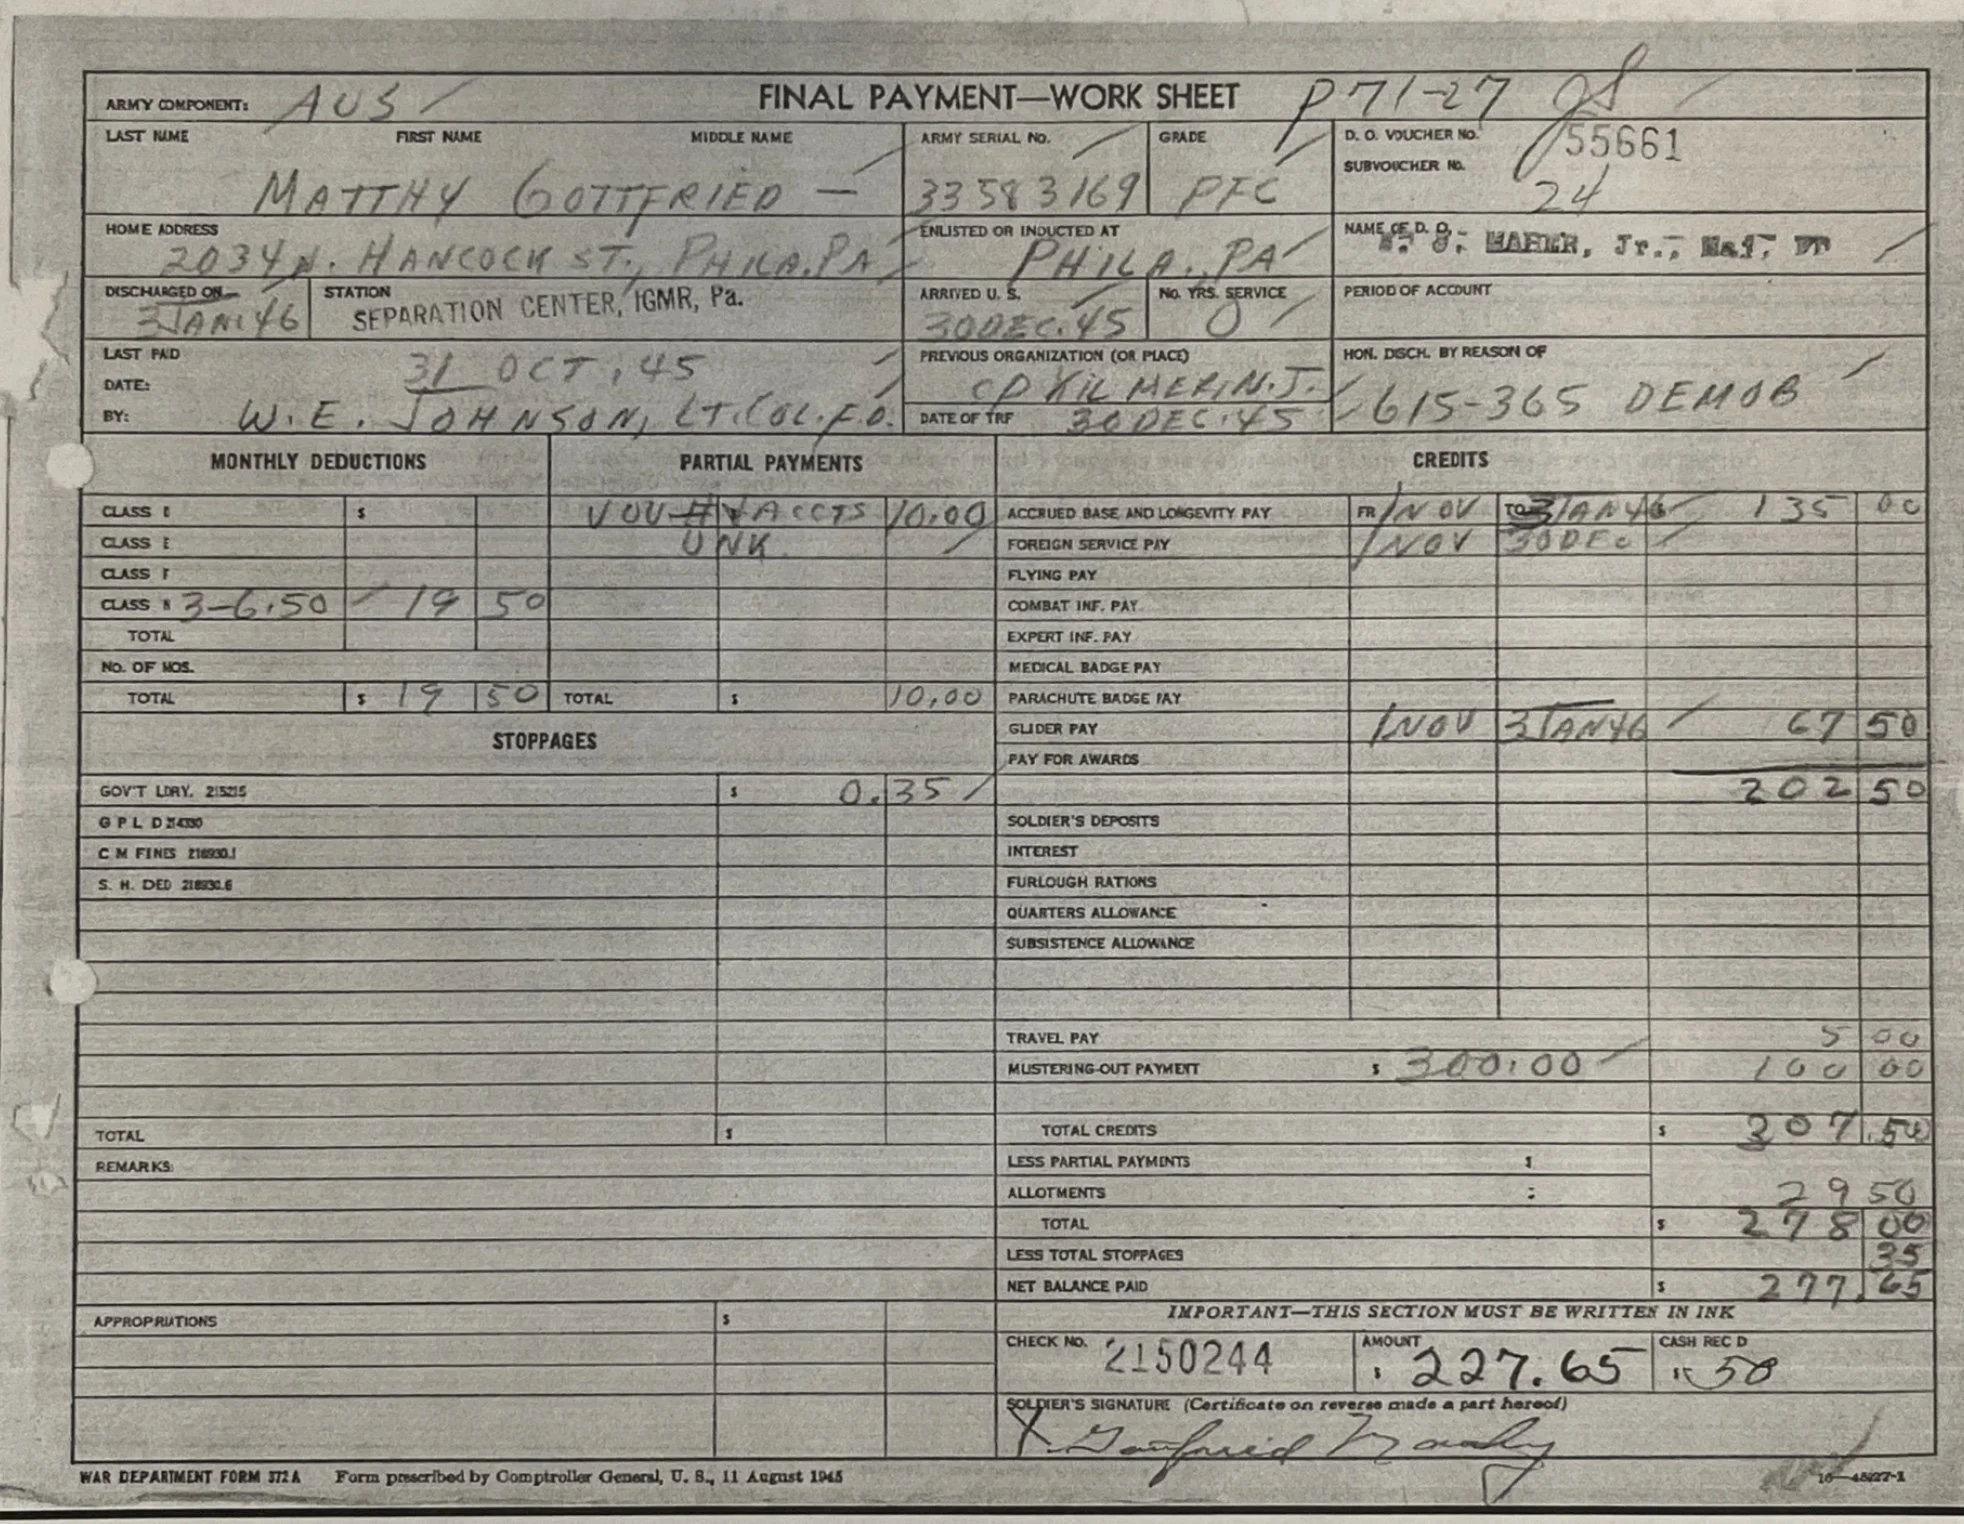 ARMY COMPONENT: AUS FINAL PAYMENT—WORK SHEET P71-27
LAST NAME FIRST NAME MIDDLE NAME ARMY SERIAL NO. GRADE D. O. VOUCHER NO. 55661
SUBVOUCHER NO. 24
MATTHY GOTTFRIED — 33583169 PFC
HOME ADDRESS ENLISTED OR INDUCTED AT NAME OF D. O. MAHER, Jr., Maj,
2034 N. HANCOCK ST., PHILA. PA PHILA., PA
DISCHARGED ON STATION ARRIVED U. S. NO. YRS. SERVICE PERIOD OF ACCOUNT
3 JAN 46 SEPARATION CENTER, IGMR, Pa. 30 DEC. 45 0
LAST PAID PREVIOUS ORGANIZATION (OR PLACE) HON. DISCH. BY REASON OF
DATE: 31 OCT. 45 CP KILMER, N.J. 615-365 DEMOB
BY: W. E. JOHNSON, LT. COL. F.D. DATE OF TRF 30 DEC. 45
MONTHLY DEDUCTIONS PARTIAL PAYMENTS CREDITS
CLASS $ VOU # & ACCTS 10.00 ACCRUED BASE AND LONGEVITY PAY FR 1 NOV TO 3 JAN 46 135 00
CLASS E UNK FOREIGN SERVICE PAY 1 NOV 30 DEC
CLASS F FLYING PAY
CLASS N 3-6.50 19 50 COMBAT INF. PAY
TOTAL EXPERT INF. PAY
NO. OF MOS. MEDICAL BADGE PAY
TOTAL $ 19 50 TOTAL $ 10.00 PARACHUTE BADGE PAY
GLIDER PAY 1 NOV 3 JAN 46 67 50
STOPPAGES PAY FOR AWARDS
GOV'T LDRY. 215215 $ 0.35 202 50
G P L D SOLDIER'S DEPOSITS
C M FINES 218930.1 INTEREST
S. H. DED 218930.6 FURLOUGH RATIONS
QUARTERS ALLOWANCE
SUBSISTENCE ALLOWANCE
TRAVEL PAY 5 00
MUSTERING-OUT PAYMENT $ 300.00 100 00
TOTAL $ TOTAL CREDITS $ 307.50
REMARKS: LESS PARTIAL PAYMENTS $
ALLOTMENTS 29 50
TOTAL $ 278 00
LESS TOTAL STOPPAGES 35
NET BALANCE PAID $ 277.65
APPROPRIATIONS $ IMPORTANT—THIS SECTION MUST BE WRITTEN IN INK
CHECK NO. 2150244 AMOUNT $ 227.65 CASH REC D $ 50
SOLDIER'S SIGNATURE (Certificate on reverse made a part hereof)
X Gottfried Matthy
WAR DEPARTMENT FORM 372A Form prescribed by Comptroller General, U. S., 11 August 1945